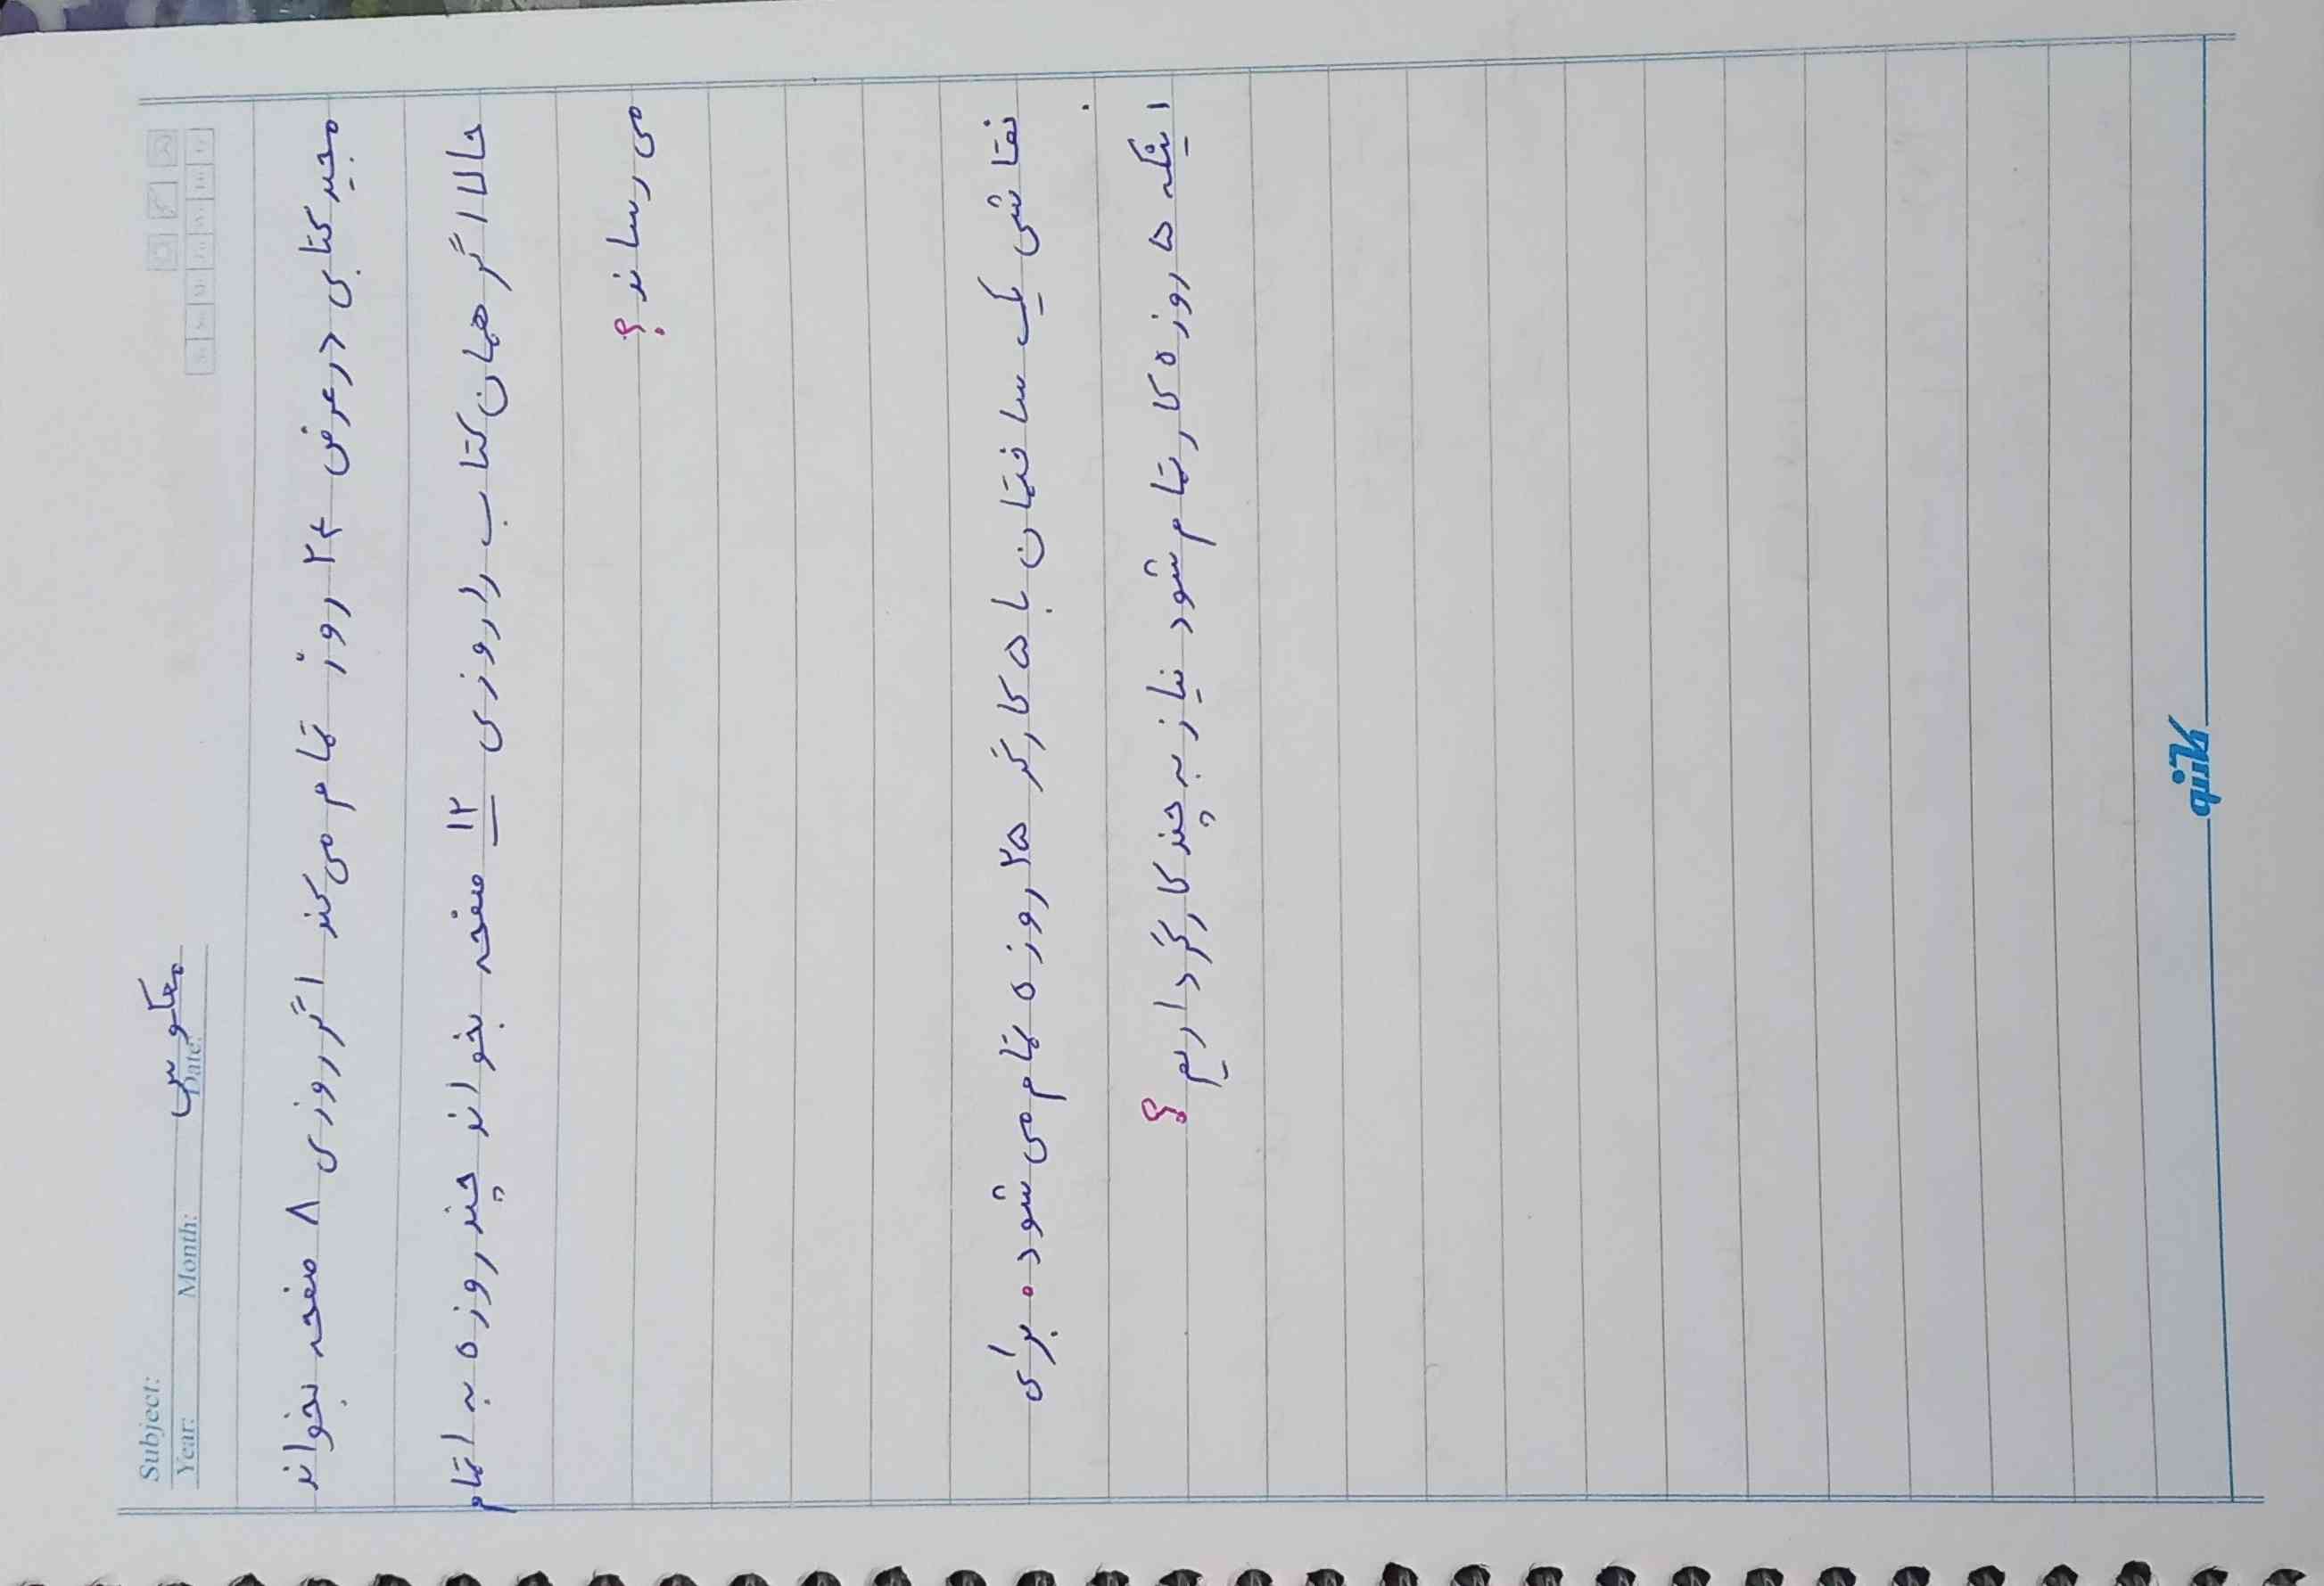 Subject:
معکوس
Year: Month: Date:
مجید کتابی در عرض ۲۴ روز تمام می‌کند اگر روزی ۸ صفحه بخواند
حالا اگر همان کتاب را روزی ۱۲ صفحه بخواند چند روزه به اتمام
می رساند؟
نقاشی یک ساختمان با ۵ کارگر ۲۵ روزه تمام می شود. برای
اینکه ۵ روزه کار تمام شود نیاز به چند کارگر داریم؟
کلاسیو